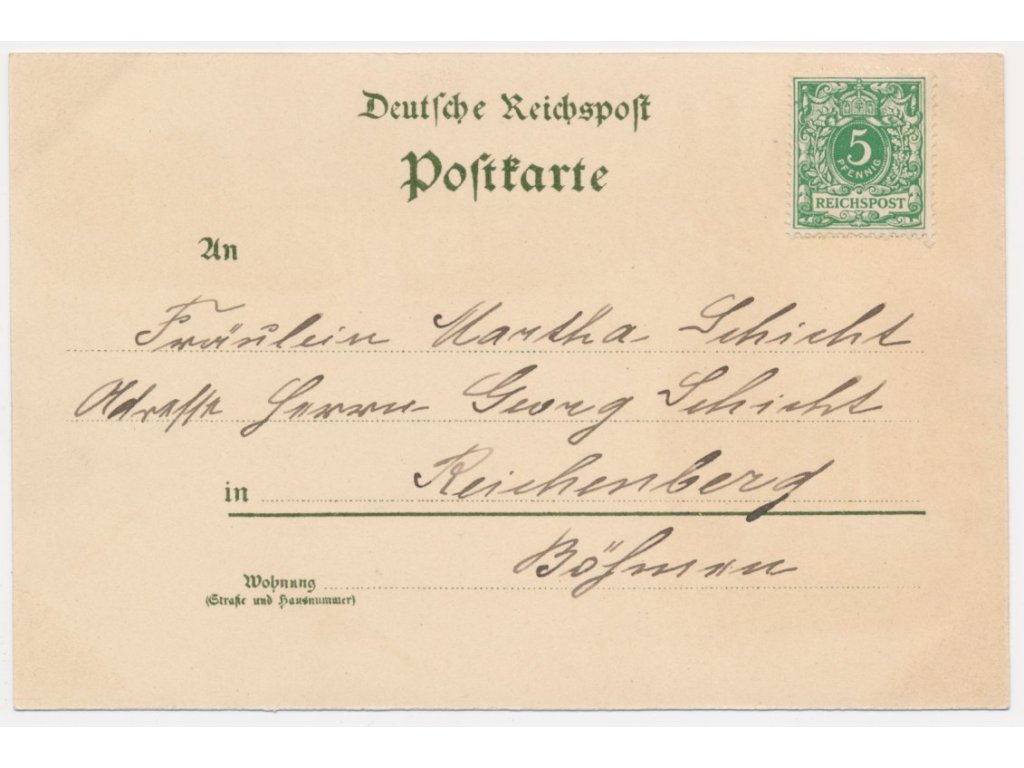 Deutsche Reichspost
Postkarte
5
PFENNIG
REICHSPOST
An
Fräulein Martha Schicht
Adresse Herrn Georg Schicht
in Reichenberg
Böhmen
Wohnung
(Straße und Hausnummer)